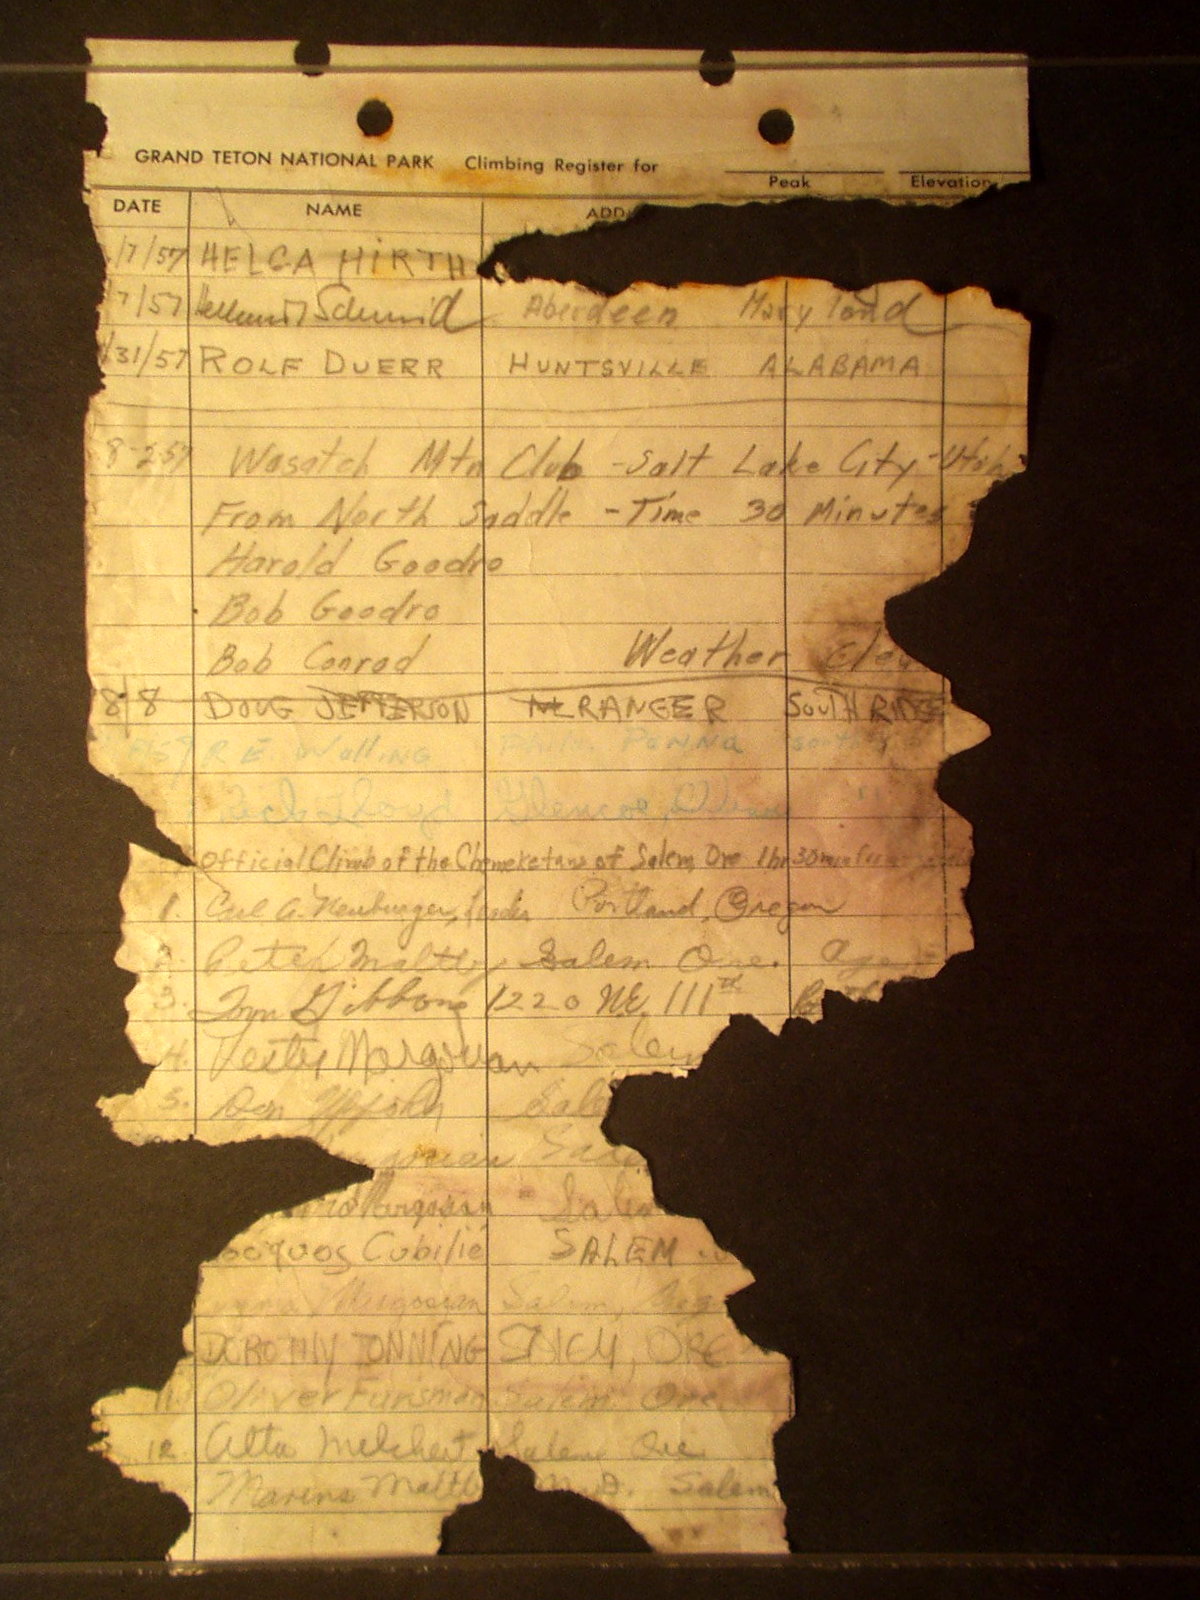 GRAND TETON NATIONAL PARK Climbing Register for
Peak Elevation
DATE NAME ADD
/7/57 HELGA HIRTH
7/57 Schmid Aberdeen Maryland
/31/57 ROLF DUERR HUNTSVILLE ALABAMA
8-2-57 Wasatch Mtn Club - Salt Lake City - Utah
From North Saddle - Time 30 Minutes
Harold Goodro
Bob Goodro
Bob Conrad Weather Clea
8/8 DOUG JEFFERSON RANGER SOUTH RIDGE
R E. Walling Penna South
Glencoe,
Official Climb of the Chemeketans of Salem Ore 1hr 30min
1. A. Neuburger, leader Portland, Oregon
2. Maltby Salem Ore. age
3. Tom Gibbons 1220 NE 111th
4. Salem
5. Don Upjohn Sale
Sale
Salem
Cubilie SALEM
Salem,
DOROTHY TONNING ORE
11. Oliver Fursman Salem Ore.
12 Alta Melchert Salem Ore
Maltb M.D. Salem